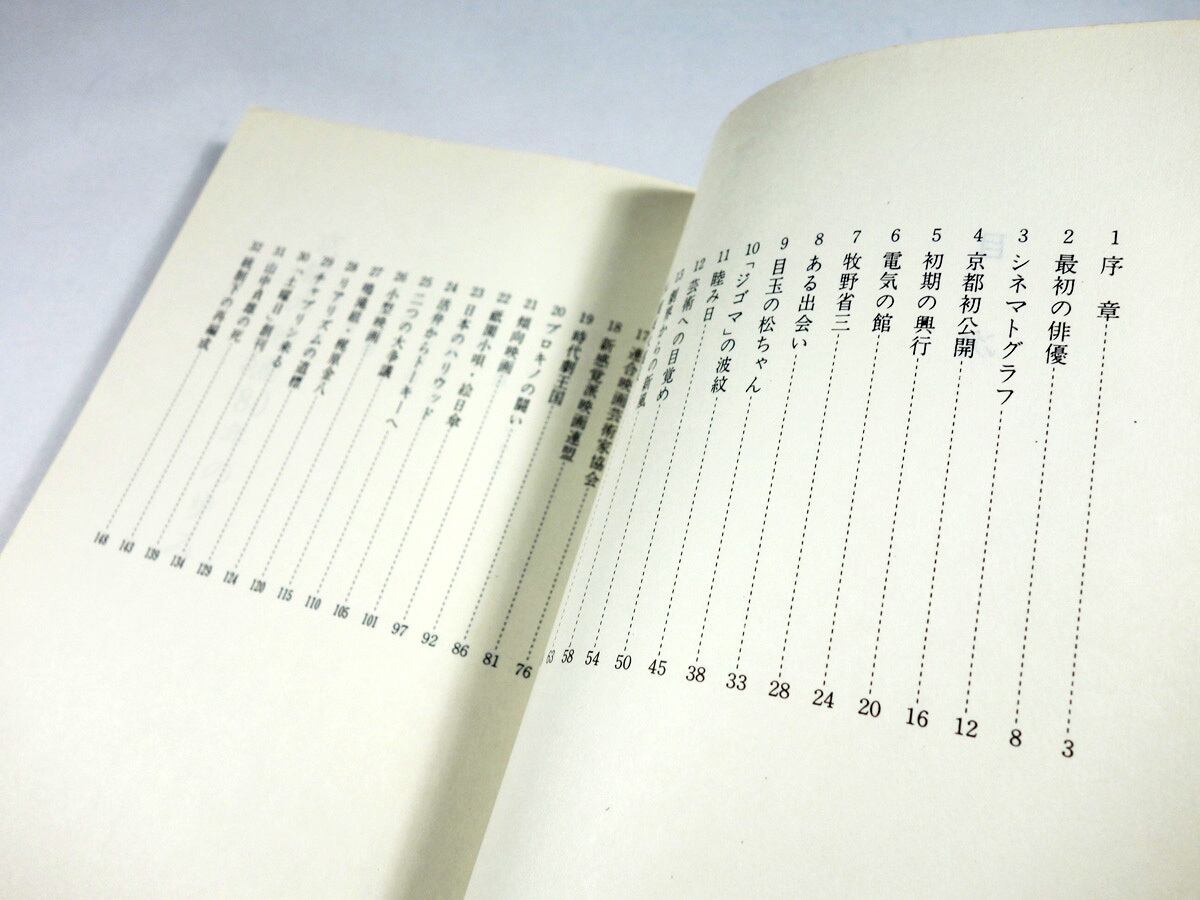 1 序章 3
2 最初の俳優 8
3 シネマトグラフ 12
4 京都初公開 16
5 初期の興行 20
6 電気の館 24
7 牧野省三 28
8 ある出会い 33
9 目玉の松ちゃん 38
10 「ジゴマ」の波紋 45
11 睦み日 50
12 芸術への目覚め 54
13 劇界からの新風 58
63
17 連合映画芸術家協会 76
18 新感覚派映画連盟 81
19 時代劇王国 86
20 プロキノの闘い 92
21 傾向映画 97
22 祇園小唄・絵日傘 101
23 日本のハリウッド 105
24 活弁からトーキーへ 110
25 二つの大争議 115
26 小型映画 120
27 鳴滝組・梶原金八 124
28 リアリズムの道標 129
29 チャップリン来る 134
30 『土曜日』創刊 139
31 山中貞雄の死 143
32 統制下の再編成 148